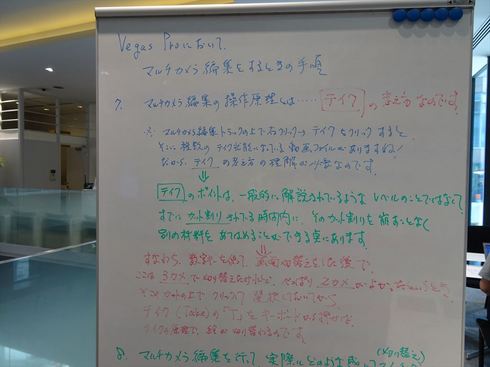 Vegas Proにおいて、
マルチカメラ編集をするときの手順
7. マルチカメラ編集の操作原理とは……[テイク]の考え方なのです。
※ マルチカメラ編集トラックの上で右クリック→テイクをクリックすると
そこに複数のテイク状態になっている動画ファイルがありますね!
だから、テイクの考え方の理解が必要なのです。
⇓
[テイク]のポイントは、一般的に解説されているようなレベルのことではなくて
すでにカット割りされている時間内に、そのカット割りを崩すことなく
別の材料をあてはめることができる点にあります。
⇓
すなわち、数字を使って画面切替をした後で、
ここは3カメで切り替えたけれど、やっぱり2カメがよかった
そのカットの上でクリックして選択
テイク(Take)の「T」をキーボードから押せば
テイクの原理で、絵が切り替わるのです。
(切り替え)
8. マルチカメラ編集を行って、実際に